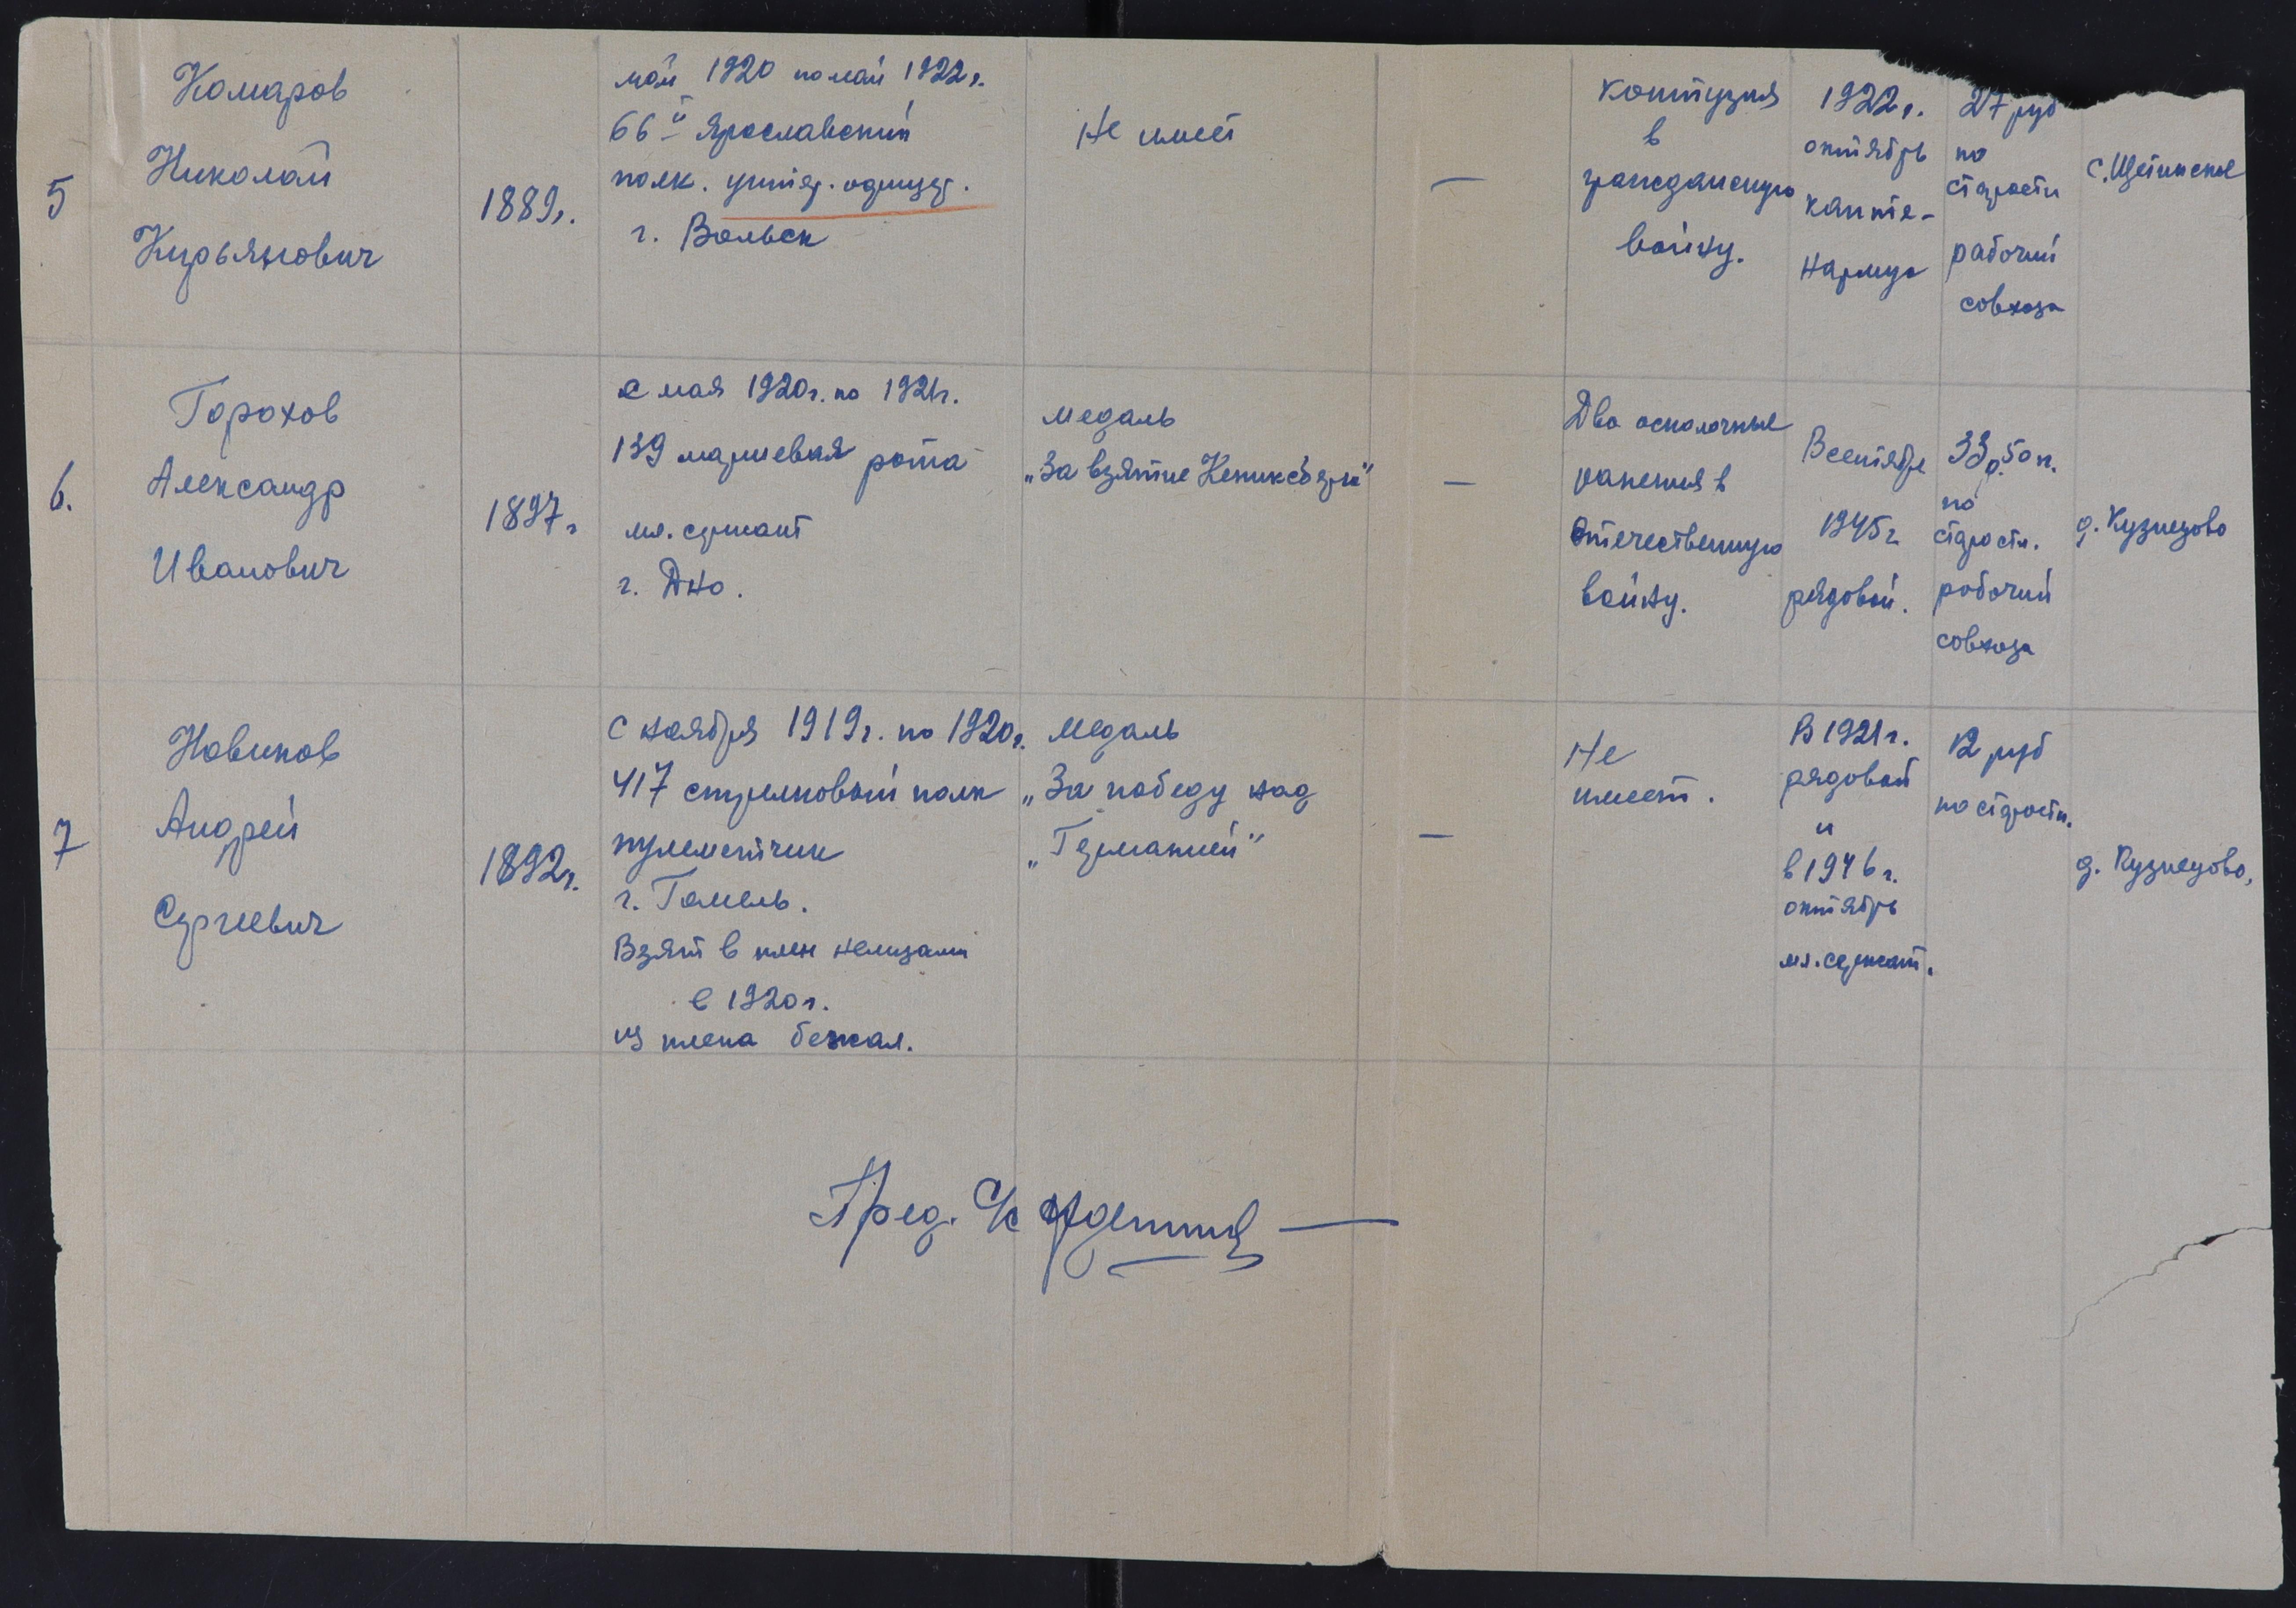 5
Комаров
Николай
Кирьянович
1889г.
май 1920 по май 1922г.
66й Ярославский
полк. унтер. офицер.
г. Вольск
Не имеет
—
контузия
в
гражданскую
войну.
1922г.
октябрь
каптe-
нармус
27 руб
по
старости
рабочий
совхоза
с. Щетинское
6.
Горохов
Александр
Иванович
1897г
с мая 1920г. по 1921г.
139 маршевая рота
мл. сержант
г. Дно.
медаль
„За взятие Кениксберг"
—
Два осколочные
ранения в
отечественную
войну.
В сентябре
1945г
рядовой.
33р. 50 к.
по
старости.
рабочий
совхоза
д. Кузнецово
7
Новиков
Андрей
Сергеевич
1892г.
с ноября 1919г. по 1920г.
417 стрелковый полк
пулеметчик
г. Гомель.
Взят в плен немцами
в 1920г.
из плена бежал.
медаль
„За победу над
„Германией"
—
Не
имеет.
В 1921г.
рядовой
и
в 1946г.
октябрь
мл. сержант.
12 руб
по старости.
д. Кузнецово,
Пред. с/с